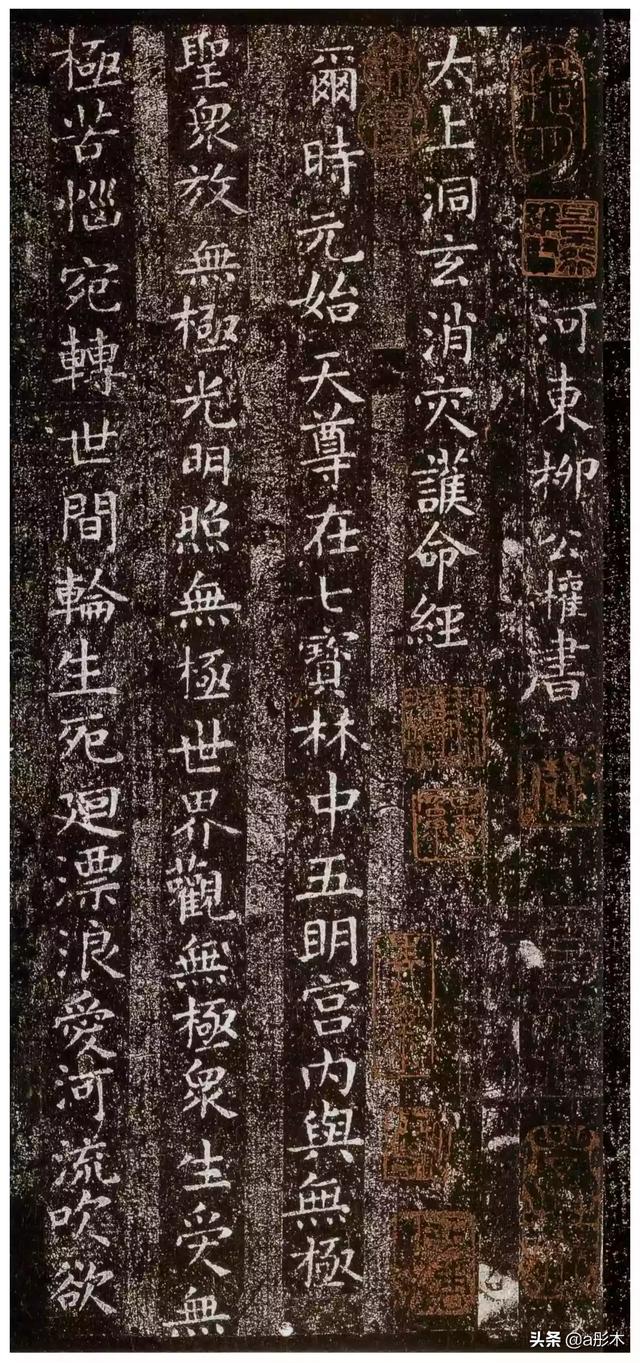 河東柳公權書
太上洞玄消灾護命經
爾時元始天尊在七寶林中五明宫内與無極
聖衆放無極光明照無極世界觀無極衆生受無
極苦惱宛轉世間輪生死迴漂浪愛河流吹欲
头条 @a彤木